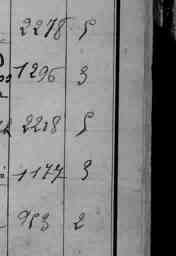 2278 5
1296 3
2218 5
1177 3
953 2